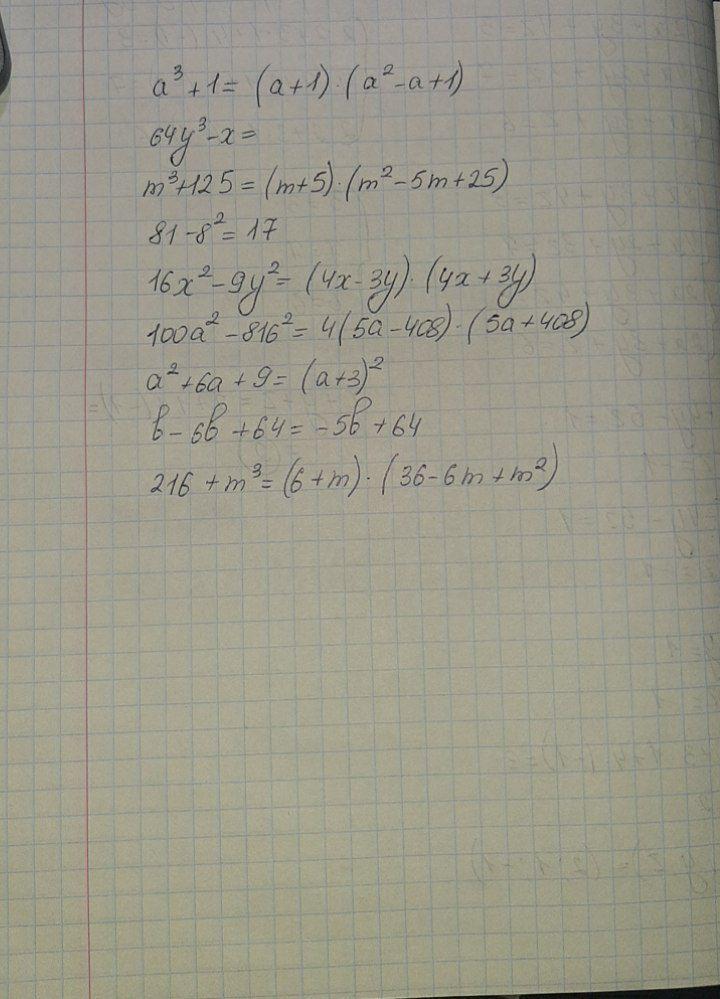 a³+1 = (a+1)·(a²-a+1)
64y³-x =
m³+125 = (m+5)·(m²-5m+25)
81-8² = 17
16x²-9y² = (4x-3y)·(4x+3y)
100a²-816² = 4(5a-408)·(5a+408)
a²+6a+9 = (a+3)²
b-6b+64 = -5b+64
216+m³ = (6+m)·(36-6m+m²)